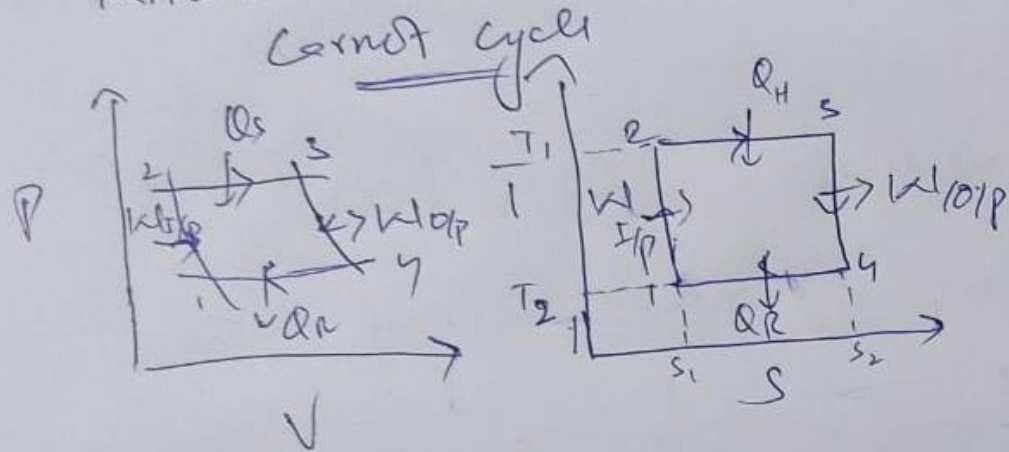 Carnot cycle
P
V
2
Qs
3
WI/p
WO/p
1
QR
4
T1
T2
2
QH
3
W I/p
WO/p
1
QR
4
S1
S2
S